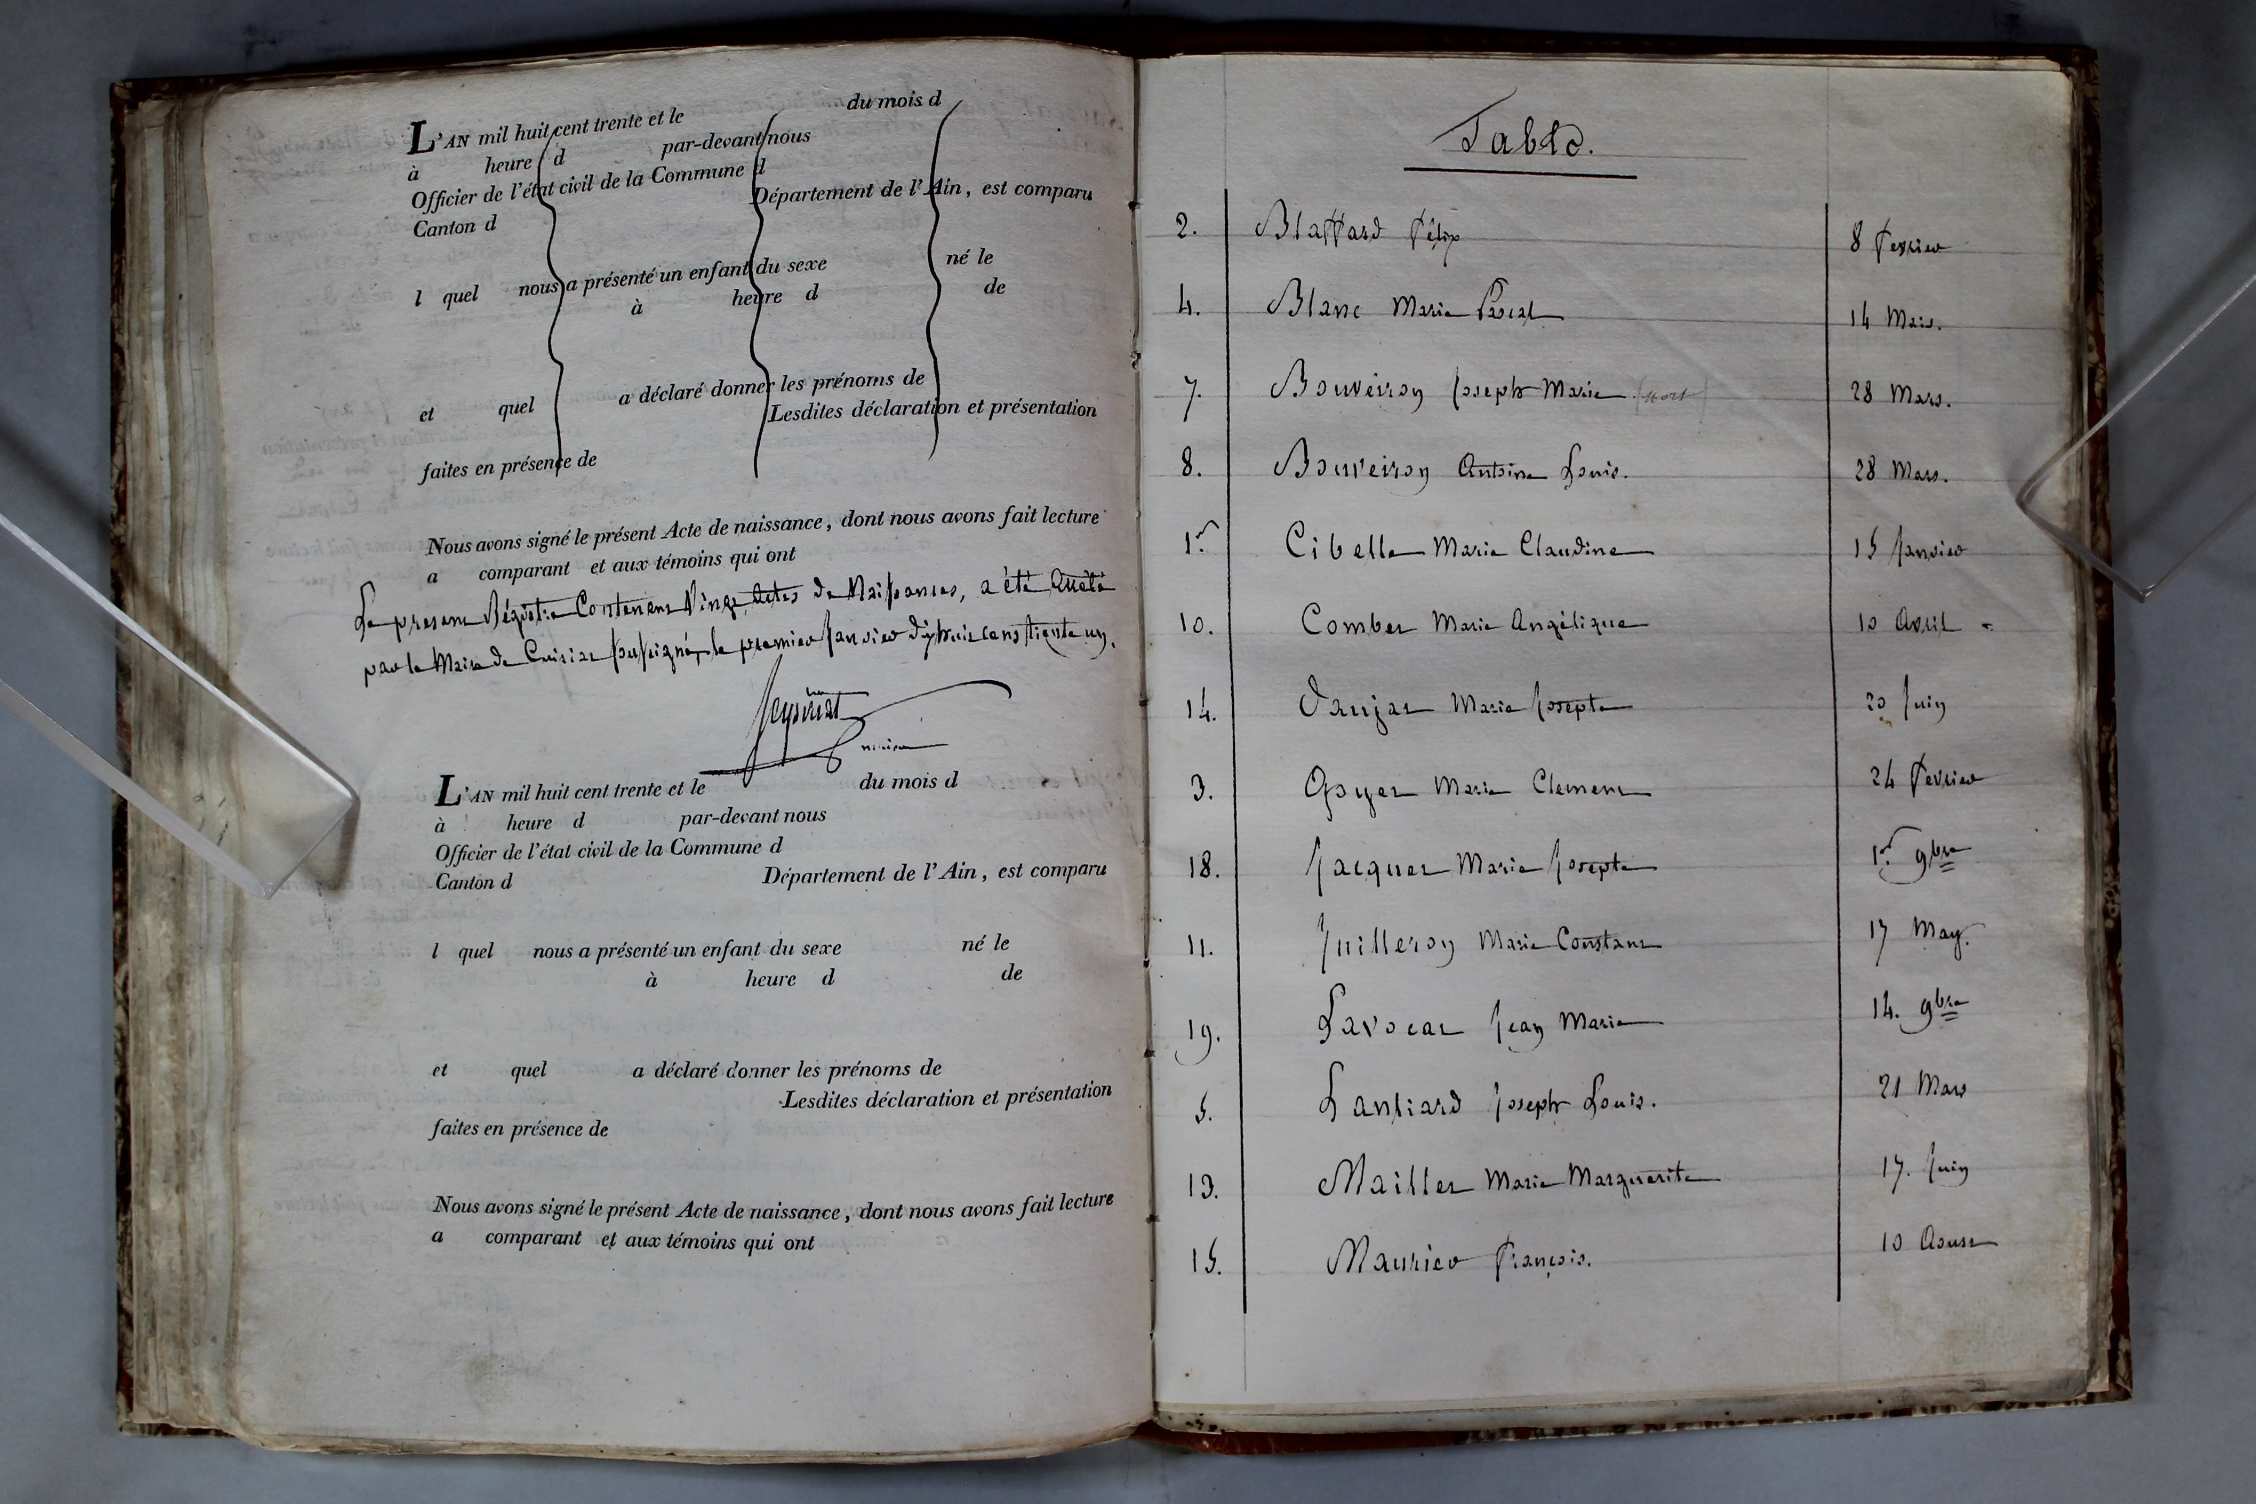 L'AN mil huit cent trente et le du mois d
à heure d par-devant nous
Officier de l'état civil de la Commune d
Canton d Département de l'Ain, est comparu
l quel nous a présenté un enfant du sexe né le
à heure d de
et quel a déclaré donner les prénoms de
Lesdites déclaration et présentation
faites en présence de
Nous avons signé le présent Acte de naissance, dont nous avons fait lecture
a comparant et aux témoins qui ont
Le present Régistre Contenant Vingt Actes de Naissances, a été Arrêté
par le Maire de Cuisiat soussigné, le premier Janvier dix huit cent trente un.
maire
L'AN mil huit cent trente et le du mois d
à heure d par-devant nous
Officier de l'état civil de la Commune d
Canton d Département de l'Ain, est comparu
l quel nous a présenté un enfant du sexe né le
à heure d de
et quel a déclaré donner les prénoms de
Lesdites déclaration et présentation
faites en présence de
Nous avons signé le présent Acte de naissance, dont nous avons fait lecture
a comparant et aux témoins qui ont
Table.
2. Blaffard Félix 8 Fevrier
4. Blanc Marie Pascal 14 Mars.
7. Bouveiron Joseph Marie (mort) 28 Mars.
8. Bouveiron Antoine Louis. 28 Mars.
1er Cibelle Marie Claudine 15 Janvier
10. Combet Marie Angélique 10 Avril
14. Daujat Marie Josepte 20 Juin
3. Goyet Marie Clement 24 Fevrier
18. Jacquet Marie Josepte 1er 9bre
11. Juilleron Marie Constant 17 May.
19. Lavocat Jean Marie 14. 9bre
5. Lantiard Joseph Louis. 21 Mars
13. Maillet Marie Marguerite 17. Juin
15. Maurier François. 10 Aoust